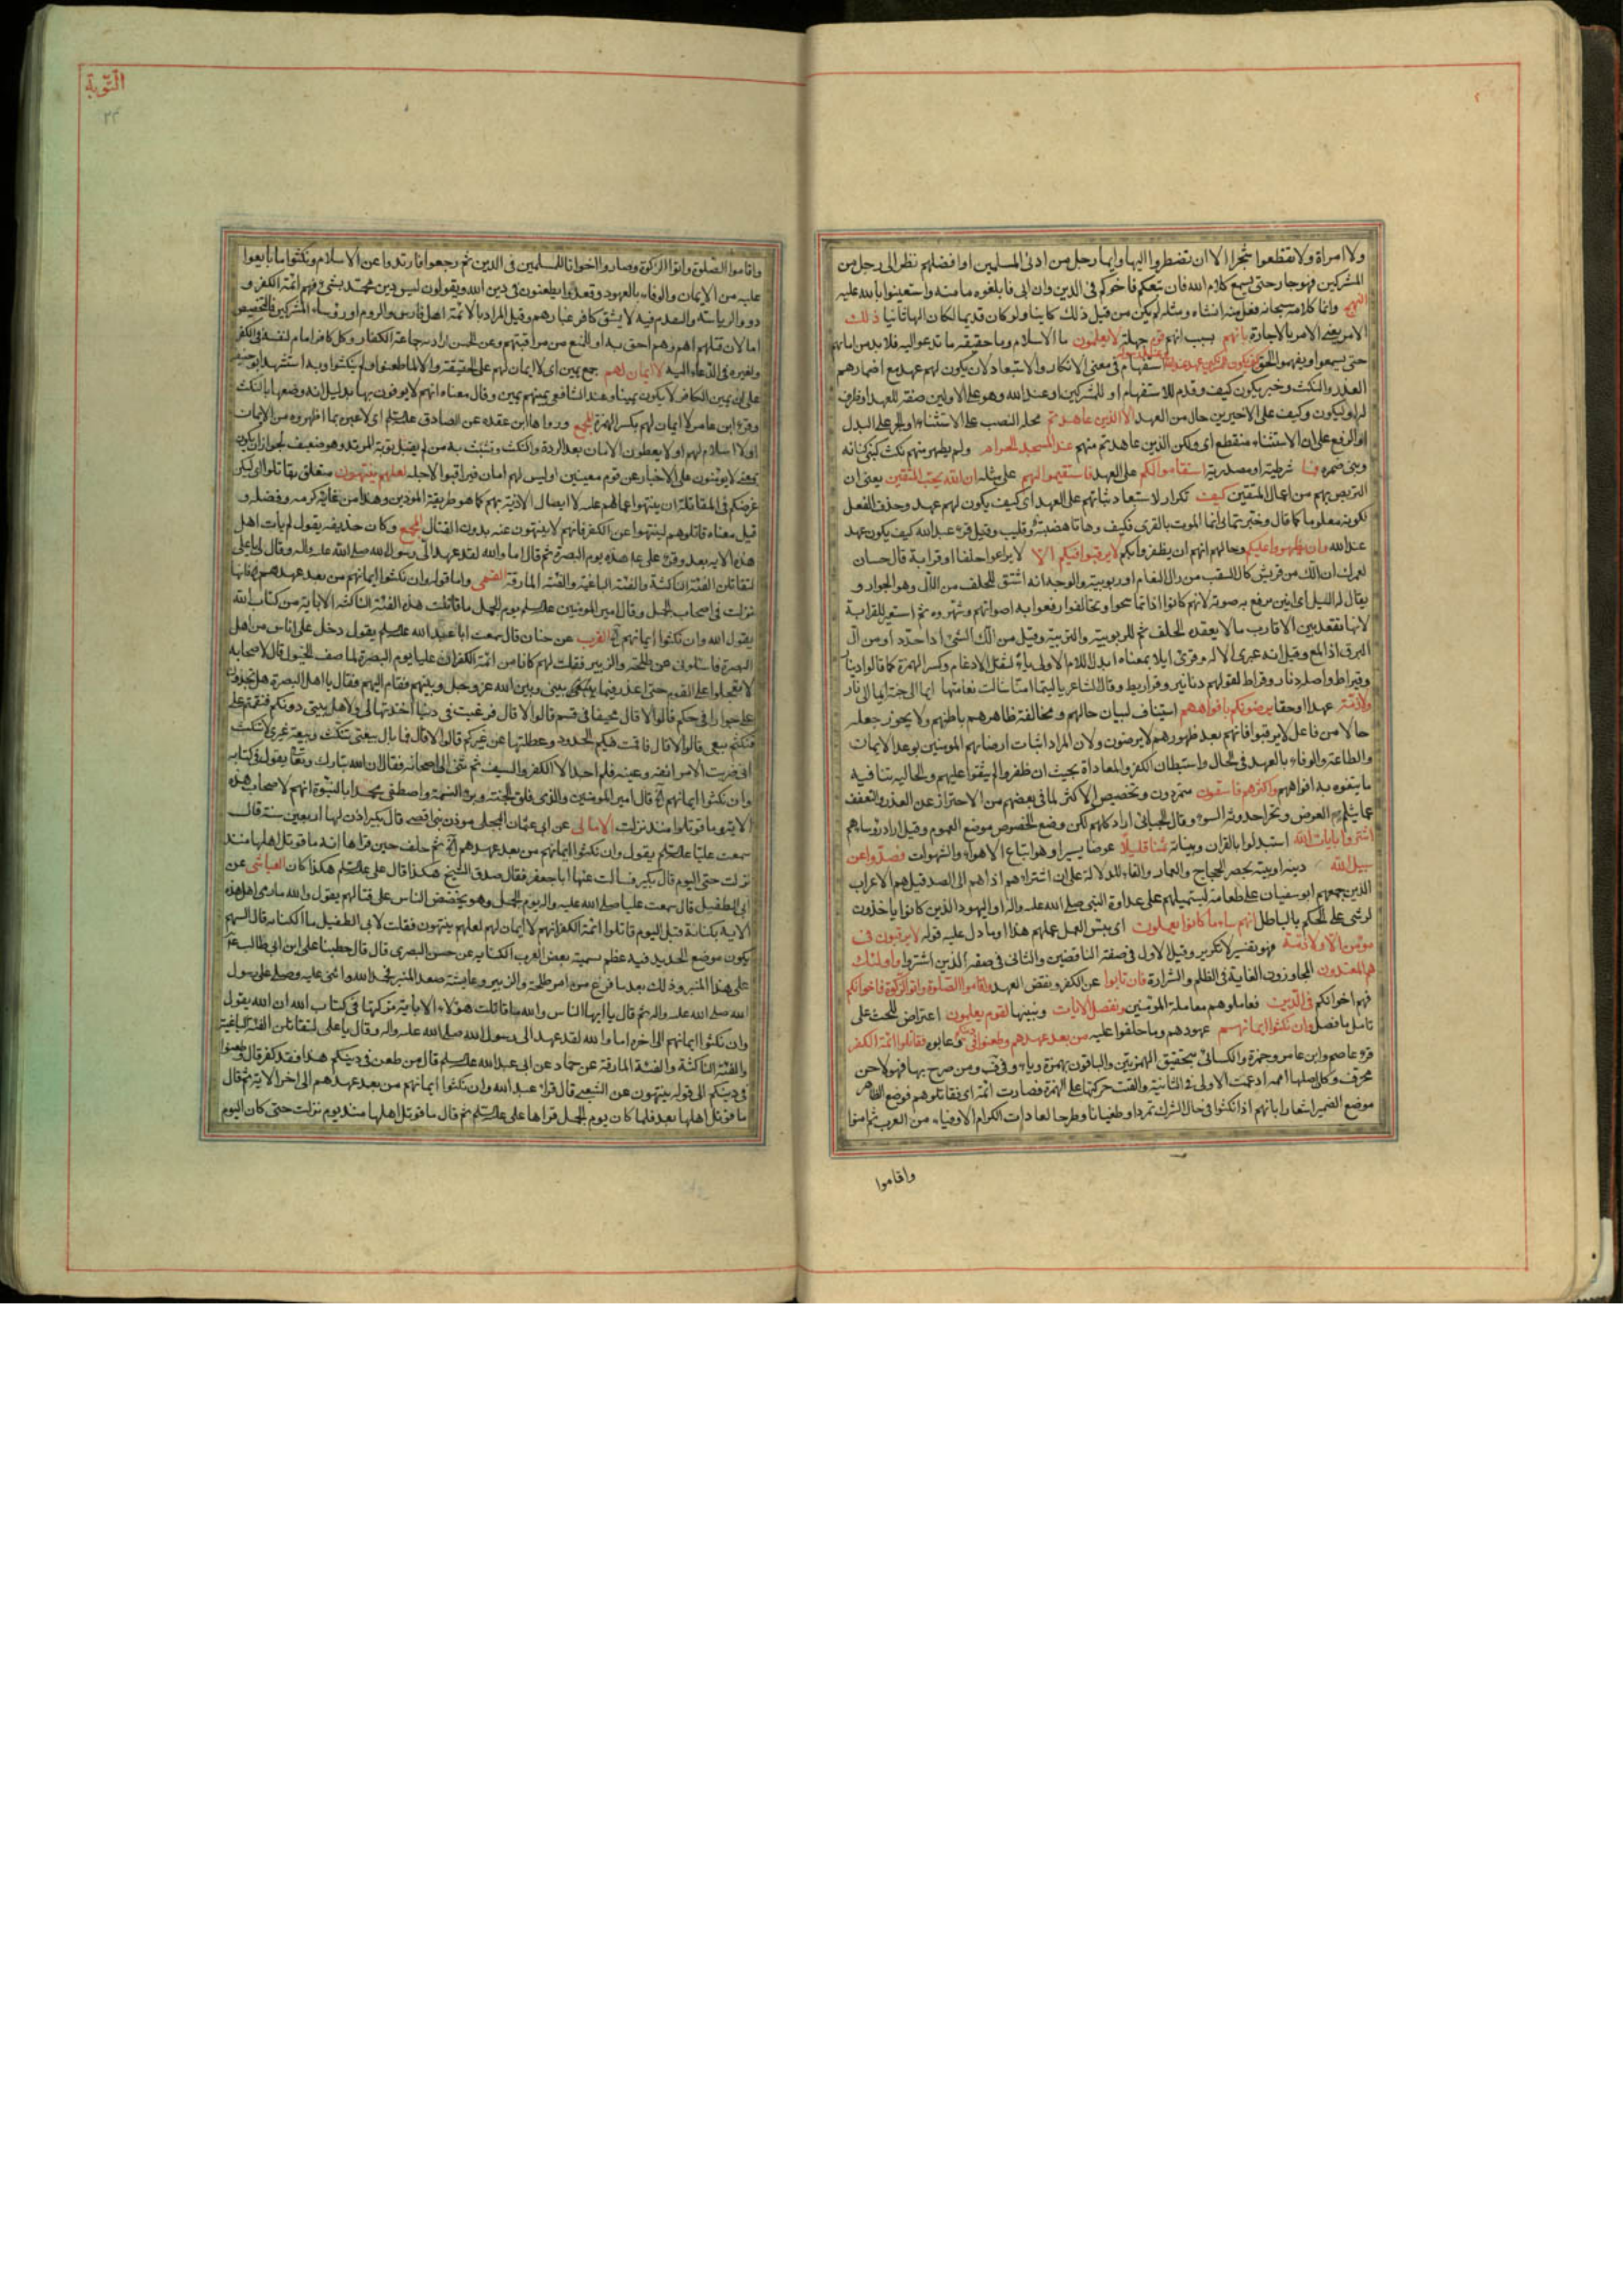 ولا امراة ولا تقطعوا شجرا الا ان تضطروا اليها وايما رجل من ادنى المسلمين او افضلهم نظر الى رجل من
المشركين فهو جار حتى يسمع كلام الله فان تبعكم فاخوكم في الدين وان ابى فابلغوه مامنه واستعينوا بالله عليه
النهج وانما كلامه سبحانه فعل منه انشاه ومثله لم يكن من قبل ذلك كاينا ولو كان قديما لكان الها ثانيا ذلك
الامر يعنى الامر بالاجارة بانهم بسبب انهم قوم جهلة لا يعلمون ما الاسلام وما حقيقة ما تدعوا اليه فلا بد من امانهم
حتى يسمعوا ويفهموا الحق كيف يكون للمشركين عهد عند الله وعند رسوله استفهام في معنى الانكار والاستبعاد لان يكون لهم عهد مع اضمارهم
الغدر والنكث وخبر يكون كيف وقدم للاستفهام او للمشركين او عند الله وهو على الاولين صفة للعهد او ظرف
له او ليكون وكيف على الاخيرين حال من العهد الا الذين عاهدتم محله النصب على الاستثناء او الجر على البدل
او الرفع على ان الاستثناء منقطع اى ولكن الذين عاهدتم منهم عند المسجد الحرام ولم يظهر منهم نكث كبنى كنانه
وبنى ضمره فما شرطية او مصدرية استقاموا لكم على العهد فاستقيموا لهم على مثله ان الله يحب المتقين يعنى ان
التربص بهم من اعمال المتقين كيف تكرار لاستبعاد ثباتهم على العهد اى كيف يكون لهم عهد وحذف الفعل
لكونه معلوما كما قال وخبرتمانى انما الموت بالقرى فكيف وهاتا هضبة وقليب وقيل قرئ عبد الله كيف يكون عهد
عند الله وان يظهروا عليكم وحالهم انهم ان يظفروا بكم لا يرقبوا فيكم الا لا يراعوا حلفا او قرابة قال حسان
لعمرك ان الّك من قريش كالّ السقب من رال النعام او ربوبية والوجه انه اشتق للحلف من الال وهو الجوار و
يقال له الليل اى انين يرفع به صوته لانهم كانوا اذا تماسحوا وتحالفوا رفعوا به اصواتهم وشهروه ثم استعير للقرابة
لانها تعقد بين الاقارب ما لا يعقده الحلف ثم للربوبية والتربية وقيل من الّك الشئ اذا حدّد او من الّ
البرق اذا لمع وقيل انه عبرى الاله وقرئ ايلا بمعناه ابدل اللام الاولى ياء لثقل الادغام وكسر الهمزة كما قالوا دينار
وقيراط واصله دنار وقراط لقولهم دنانير وقراريط وقال الشاعر ياليتما امنا شالت نعامتها ايما الى جنة ايما الى نار
ولا ذمة عهدا او حقا يرضونكم بافواههم استيناف لبيان حالهم ومخالفة ظاهرهم باطنهم ولا يجوز جعله
حالا من فاعل لا يرقبوا فانهم بعد ظهورهم لا يرضون ولان المراد اثبات ارضائهم المومنين بوعد الايمان
والطاعة والوفاء بالعهد في الحال واستبطان الكفر والمعاداة بحيث ان ظفروا لم يبقوا عليهم والحالية تنافيه
ما يتفوه به افواههم واكثرهم فاسقون متمردون وتخصيص الاكثر لما في بعضهم من الاحتراز عن الغدر والتعفف
عما يثلم العرض ويجر احدوثة السوء وقال الجبائى اراد كلهم لكن وضع الخصوص موضع العموم وقيل اراد رؤساهم
اشتروا بايات الله استبدلوا بالقران وبيناته ثمنا قليلا عوضا يسيرا وهو اتباع الاهواء والشهوات فصدوا عن
سبيل الله دينه او بيته بحصر الحجاج والعمار والفاء للدلالة على ان اشتراءهم اداهم الى الصد قيل هم الاعراب
الذين جمعهم ابو سفيان على طعامه ليستميلهم على عداوة النبى صلى الله عليه واله او اليهود الذين كانوا ياخذون
الرشى على الحكم بالباطل انهم ساء ما كانوا يعملون اى بئس العمل عملهم هذا او ما دل عليه قوله لا يرقبون في
مؤمن الا ولا ذمة فهو تفسير لا تكرير وقيل الاول في صفة الناقضين والثانى في صفة الذين اشتروا واولئك
هم المعتدون المجاوزون الغاية في الظلم والشرارة فان تابوا عن الكفر ونقض العهد واقاموا الصلوة واتوا الزكوة فاخوانكم
فهم اخوانكم في الدين فعاملوهم معاملة المؤمنين ونفصل الايات ونبينها لقوم يعلمون اعتراض للحث على
تامل ما فصل وان نكثوا ايمانهم عهودهم وما حلفوا عليه من بعد عهدهم وطعنوا في دينكم وعابوه فقاتلوا ائمة الكفر
قرء عاصم وابن عامر وحمزة والكسائى بتحقيق الهمزتين والباقون بهمزة وياء وفي ق ب ومن صرح بها فهو لاحن
محرف وكان اصلها اءممة ادغمت الاولى في الثانية والقت حركتها على الهمزة فصارت ائمة اى فقاتلوهم فوضع الظاهر
موضع الضمير اشعارا بانهم اذا نكثوا في حال الشرك تمردا وطغيانا وطرحا لعادات الكرام الاوفياء من العرب ثم امنوا
واقاموا
التوبة
واقاموا الصلوة واتوا الزكوة وصاروا اخوانا للمسلمين في الدين ثم رجعوا فارتدوا عن الاسلام ونكثوا ما بايعوا
عليه من الايمان والوفاء بالعهود وقعدوا يطعنون في دين الله ويقولون ليس دين محمد بشئ فهم ائمة الكفر و
ذوو الرياسة والتقدم فيه لا يشق كافر غبارهم وقيل المراد بالائمة اهل فارس والروم او رؤساء المشركين فالتخصيص
اما لان قتلهم اهم وهم احق به او المنع من مراقبتهم وعن الحسن اراد به جماعة الكفار وكل كافر امام لنفسه في الكفر
ولغيره في الدعاء اليه لا ايمان لهم جمع يمين اى لا ايمان لهم على الحقيقة والا لما طعنوا ولم ينكثوا وبه استشهد ابو حنيفة
على ان يمين الكافر لا يكون يمينا وعند الشافعى يمينهم يمين وقال معناه انهم لا يوفون بها بدليل انه وصفها بالنكث
وقرء ابن عامر لا ايمان لهم بكسر الهمزة المجمع ورواها ابن عقده عن الصادق علیه السلام اى لا عبرة بما اظهروه من الايمان
او لا اسلام لهم او لا يعطون الامان بعد الردة والنكث وتشبث به من لم يقبل توبة المرتد وهو ضعيف لجواز ان يكون
بمعنى لا يؤمنون على الاخبار عن قوم معينين او ليس لهم امان فيراقبوا لاجله لعلهم ينتهون متعلق بقاتلوا اى ليكن
غرضكم في المقاتلة ان ينتهوا عما هم عليه لا ايصال الاذية بهم كما هو طريقة الموذين وهذا من غاية كرمه وفضله و
قيل معناه قاتلوهم لينتهوا عن الكفر فانهم لا ينتهون عنه بدون القتال المجمع وكان حذيفه يقول لم يات اهل
هذه الاية بعد وقرء على ع هذه يوم البصرة ثم قال اما والله لقد عهد الى رسول الله صلى الله عليه واله وقال لى يا على
لتقاتلن الفئة الناكثة والفئة الباغية والفئة المارقة القمى واما قوله وان نكثوا ايمانهم من بعد عهدهم فانها
نزلت في اصحاب الجمل وقال امير المومنين علیه السلام يوم الجمل ما قاتلت هذه الفئة الناكثة الا باية من كتاب الله
يقول الله وان نكثوا ايمانهم الخ القرب عن حنان قال سمعت ابا عبد الله علیه السلام يقول دخل على اناس من اهل
البصرة فسالونى عن طلحة والزبير فقلت لهم كانا من ائمة الكفر ان عليا يوم البصرة لما صف الخيول قال لاصحابه
لا تعجلوا على القوم حتى اعذر فيما بينى وبين الله عز وجل وبينهم فقام اليهم فقال يا اهل البصرة هل تجدون
على جورا في حكم قالوا لا قال فحيفا في قسم قالوا لا قال فرغبت في دنيا اخذتها لى ولاهل بيتى دونكم فنقمتم على
فنكثتم بيعتى قالوا لا قال فاقمت فيكم الحدود وعطلتها عن غيركم قالوا لا قال فما بال بيعتى تنكث وبيعة غيرى لا تنكث
انى ضربت الامر انفه وعينه فلم اجد الا الكفر والسيف ثم ثنى الى اصحابه فقال ان الله تبارك وتعالى يقول في كتابه
وان نكثوا ايمانهم الخ قال امير المومنين والذى فلق الحبة وبرء النسمة واصطفى محمدا بالنبوة انهم لاصحاب هذه
الاية وما قوتلوا منذ نزلت الامالى عن ابى عثمان البجلى موذن بنى اقصى قال بكير اذن لها اربعين سنة قال
سمعت عليا علیه السلام يقول وان نكثوا ايمانهم من بعد عهدهم الخ ثم حلف حين قراها انه ما قوتل اهلها منذ
نزلت حتى اليوم قال بكير فسالت عنها ابا جعفر فقال صدق الشيخ هكذا قال على علیه السلام هكذا كان العياشى عن
ابى الطفيل قال سمعت عليا صلى الله عليه واله يوم الجمل وهو يحضض الناس على قتالهم يقول والله ما رمى اهل هذه
الاية بكنانة قبل اليوم قاتلوا ائمة الكفر انهم لا ايمان لهم لعلهم ينتهون فقلت لابى الطفيل ما الكنانه قال السهم
يكون موضع الحديد فيه عظم تسميه بعض العرب الكنانه عن حسن البصرى قال خطبنا على ابن ابى طالب ع
على هذا المنبر وذلك بعد ما فرغ من امر طلحة والزبير وعايشة صعد المنبر فحمد الله واثنى عليه وصلى على رسول
الله صلى الله عليه واله ثم قال يا ايها الناس والله ما قاتلت هؤلاء الا باية تركتها في كتاب الله ان الله يقول
وان نكثوا ايمانهم الى اخره اما والله لقد عهد الى رسول الله صلى الله عليه واله وقال يا على لتقاتلن الفئة الباغية
والفئة الناكثة والفئة المارقة عن حماد عن ابى عبد الله علیه السلام قال من طعن في دينكم هذا فقد كفر قال وطعنوا
في دينكم الى قوله ينتهون عن الشعبى قال قرء عبد الله وان نكثوا ايمانهم من بعد عهدهم الى اخر الاية ثم قال
ما قوتل اهلها بعد فلما كان يوم الجمل قراها على علیه السلام ثم قال ما قوتل اهلها منذ يوم نزلت حتى كان اليوم